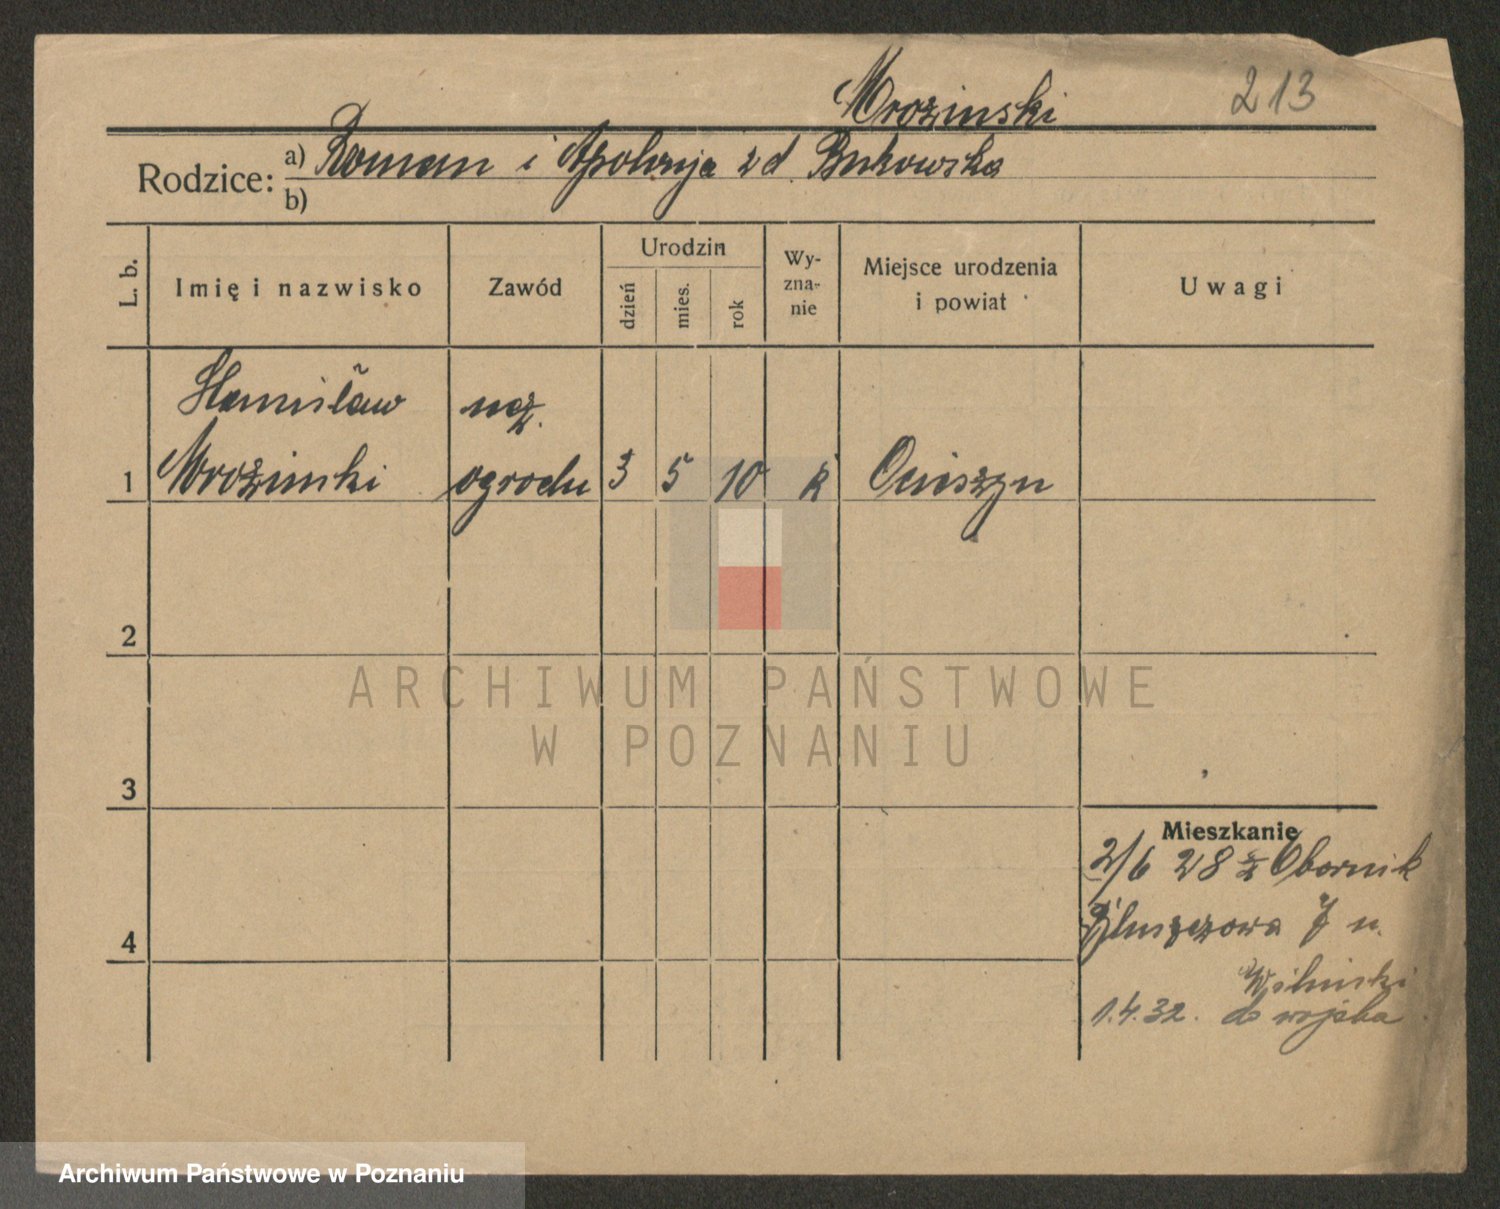 Mrozinski
213
Rodzice: a) Roman i Apolonja z d. Bukowska
b)
L. b.
Imię i nazwisko
Zawód
Urodzin
dzień
mies.
rok
Wy-
zna-
nie
Miejsce urodzenia
i powiat
Uwagi
Stanisław ucz.
1 Mroziński ogrodu 3 5 10 k Ocieszyn
2
3
4
Mieszkanie
2/6 28 z Obornik
7 u.
Wilinski
1.4.32. do wojska
ARCHIWUM PAŃSTWOWE
W POZNANIU
Archiwum Państwowe w Poznaniu